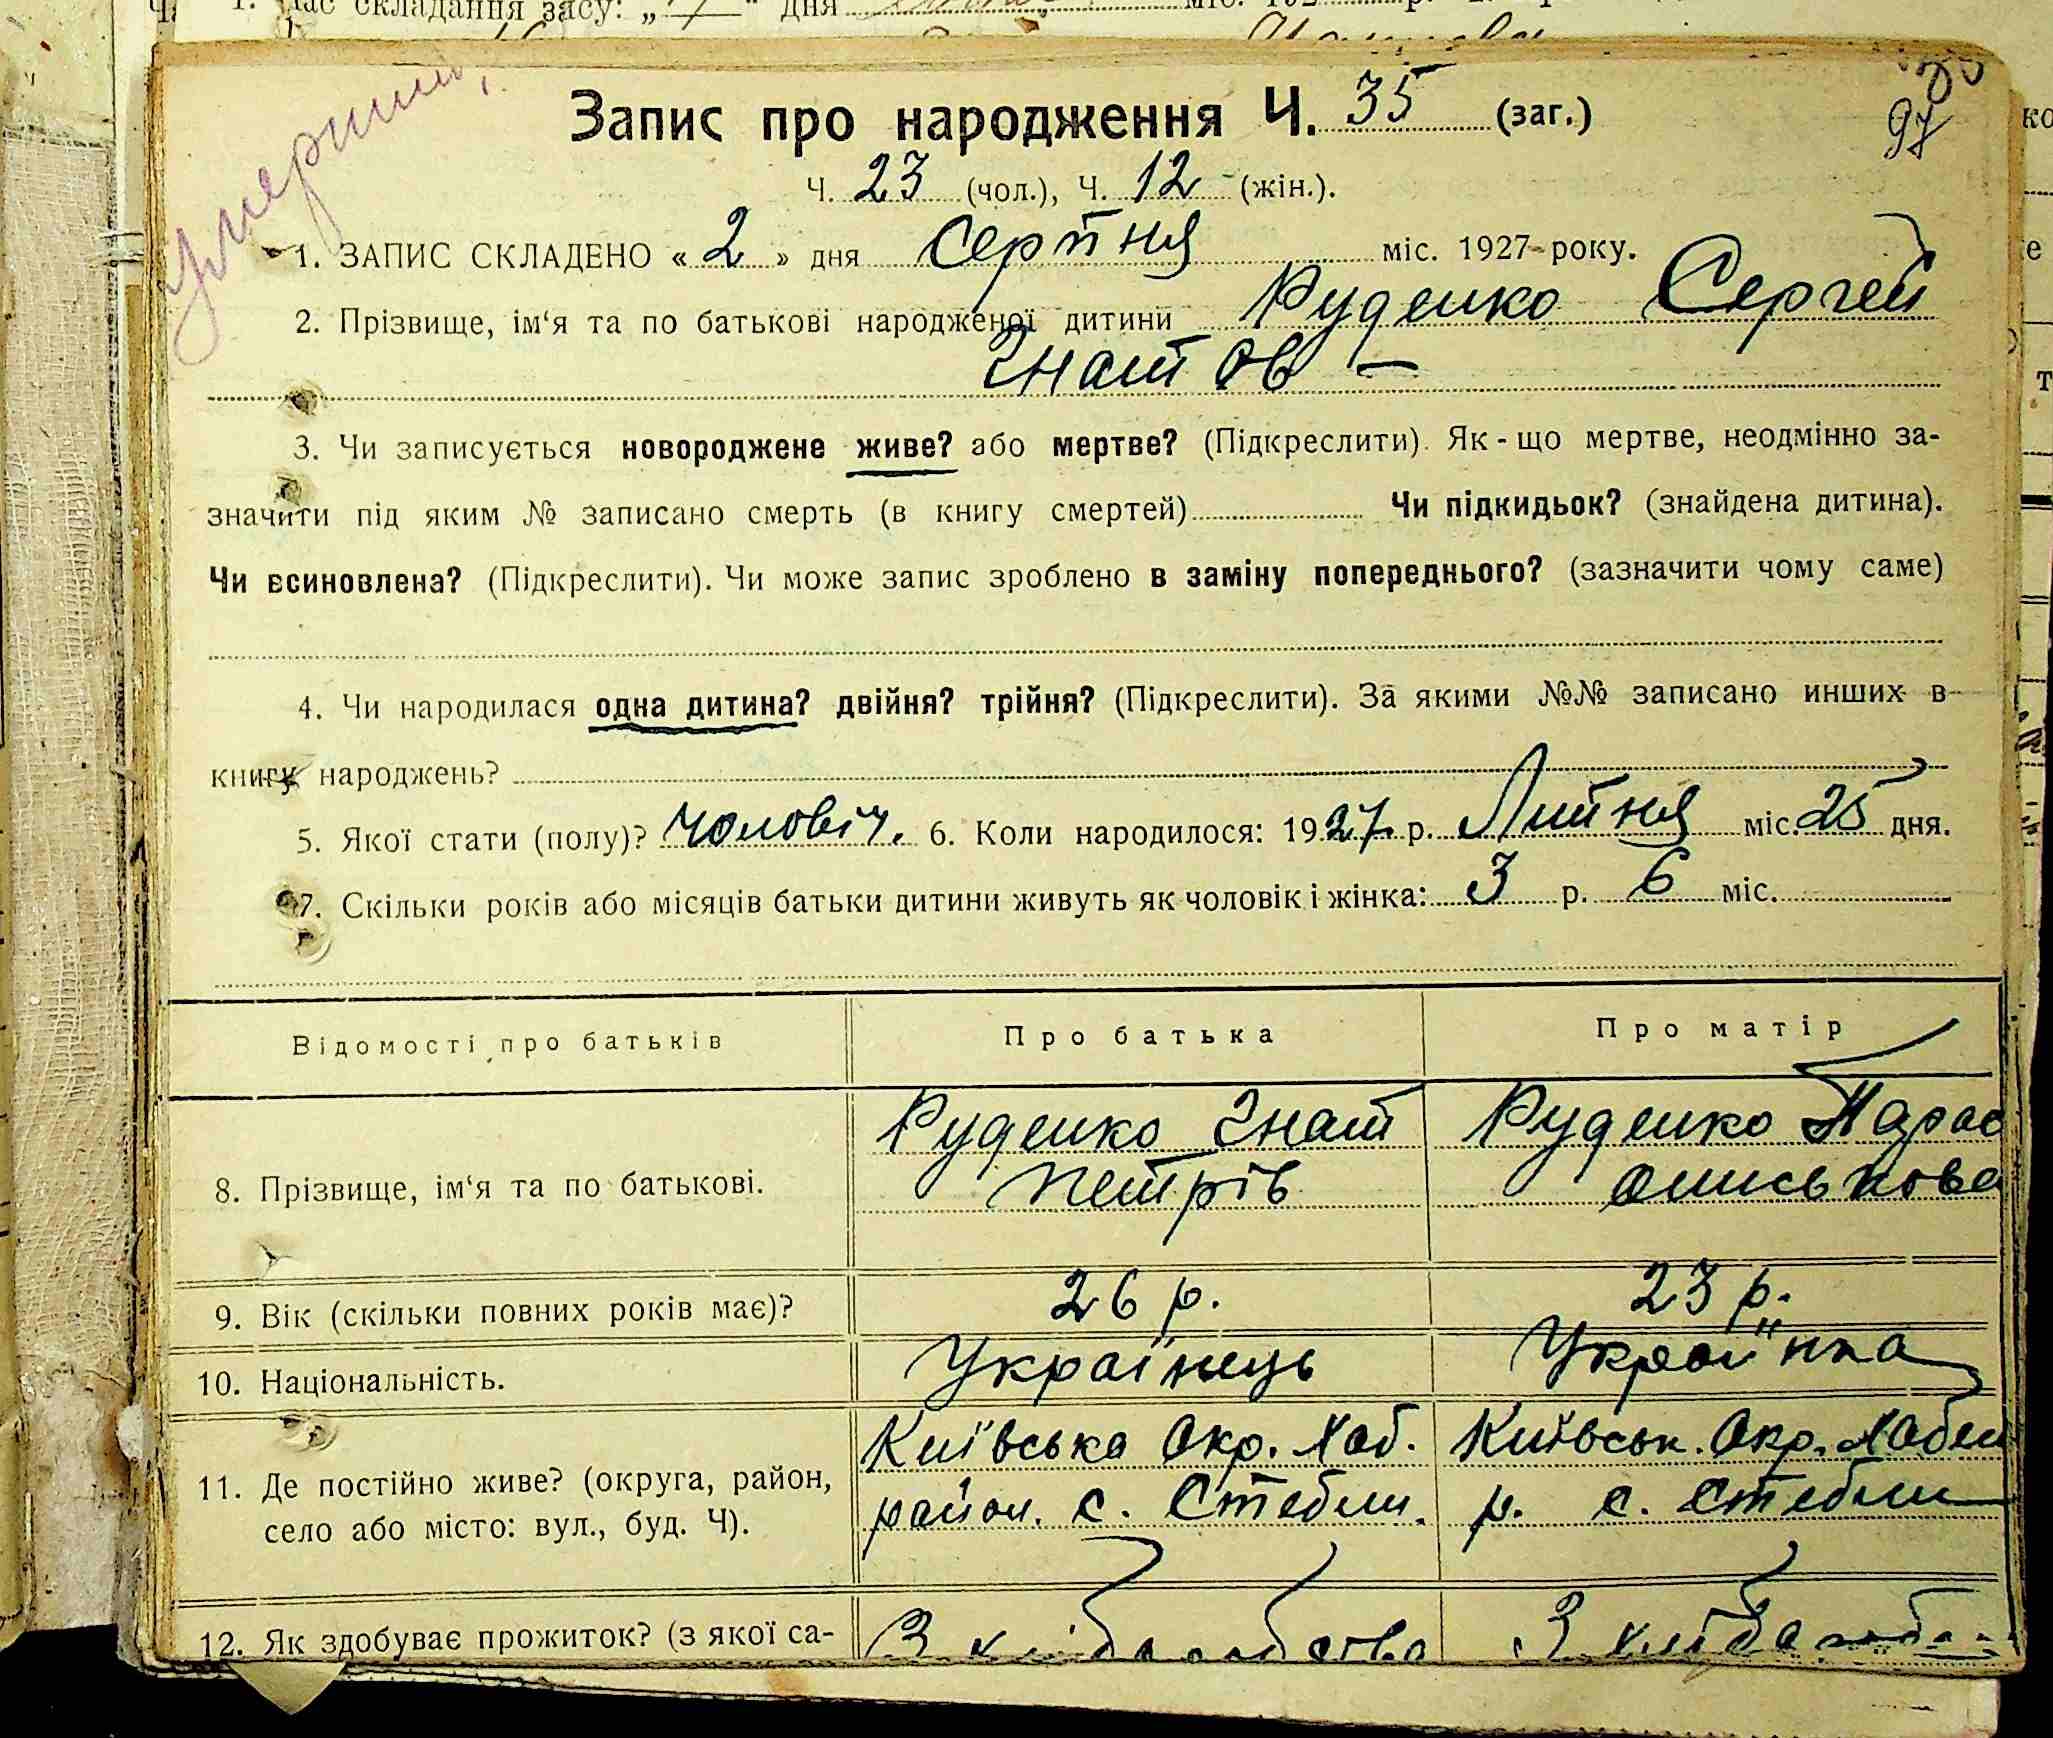 умерший
Запис про народження Ч. 35 (заг.)
97
Ч. 23 (чол.), Ч. 12 (жін.).
1. ЗАПИС СКЛАДЕНО « 2 » дня Серпня міс. 1927 року.
2. Прізвище, ім‘я та по батькові народженої дитини Руденко Сергей
Гнатов —
3. Чи записується новороджене живе? або мертве? (Підкреслити). Як-що мертве, неодмінно за-
значити під яким № записано смерть (в книгу смертей) Чи підкидьок? (знайдена дитина).
Чи всиновлена? (Підкреслити). Чи може запис зроблено в заміну попереднього? (зазначити чому саме)
4. Чи народилася одна дитина? двійня? трійня? (Підкреслити). За якими №№ записано инших в
книгу народжень?
5. Якої стати (полу)? чоловіч. 6. Коли народилося: 1927 р. Липня міс. 25 дня.
7. Скільки років або місяців батьки дитини живуть як чоловік і жінка: 3 р. 6 міс.
Відомості про батьків Про батька Про матір
Руденко Гнат Руденко Парас
8. Прізвище, ім‘я та по батькові. Петрів
9. Вік (скільки повних років має)? 26 р. 23 р.
10. Національність. Українець Українка
Київська Окр. Каб. Київськ. Окр.
11. Де постійно живе? (округа, район, район. с. Стебли. р. с. Стебли
село або місто: вул., буд. Ч).
12. Як здобуває прожиток? (з якої са- З хліборобства З хлібороб